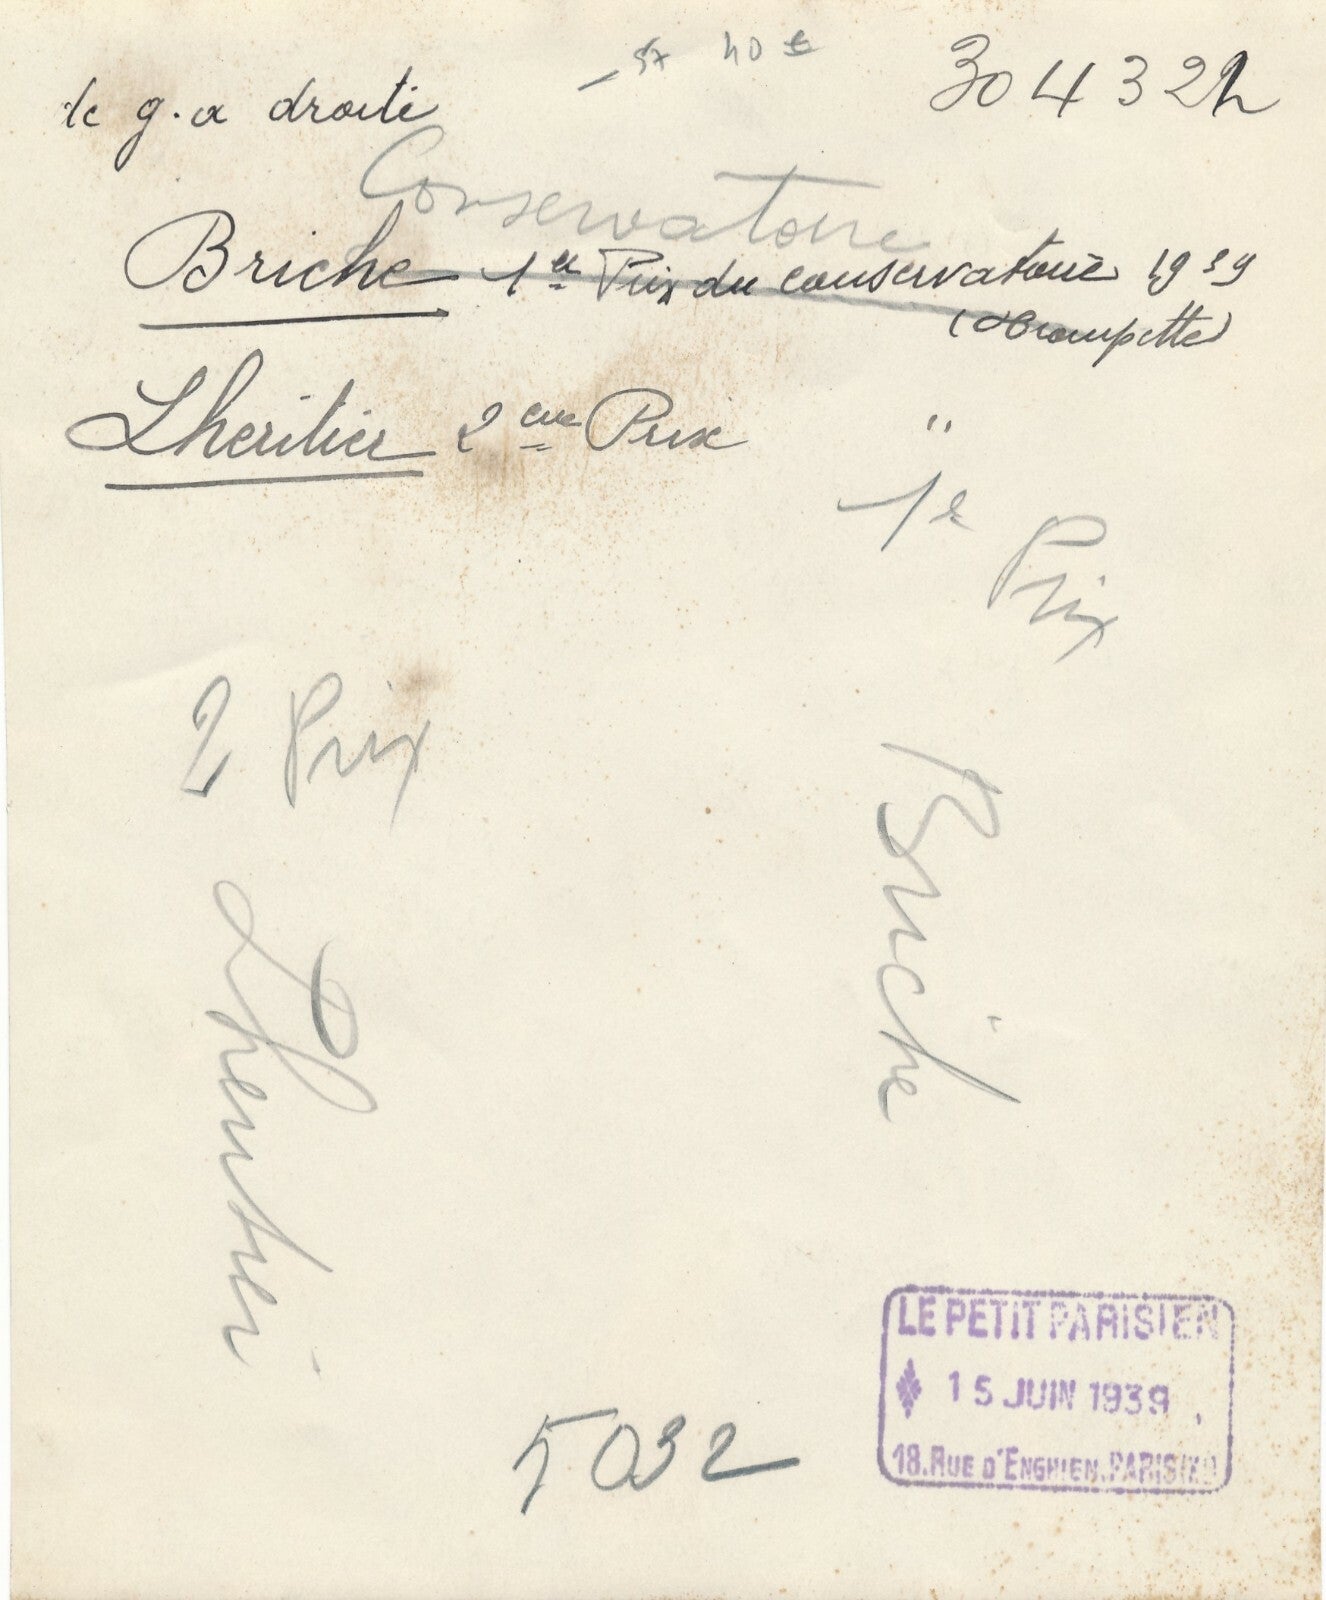 304322
de g. a droite
Conservatoire
Briche 1er Prix du conservatoire 1939
(trompette)
Lheritier 2eme Prix "
1er Prix
2 Prix
Briche
Lheritier
5032
LE PETIT PARISIEN
15 JUIN 1939
18.RUE D'ENGHIEN.PARIS(Xe)